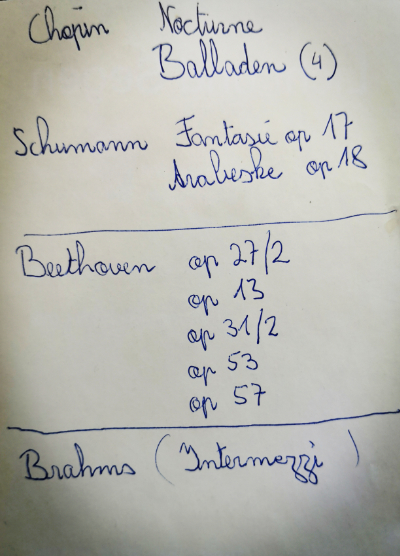 Chopin Nocturne
Balladen (4)
Schumann Fantasie op 17
Arabeske op 18
Beethoven op 27/2
op 13
op 31/2
op 53
op 57
Brahms (Intermezzi)